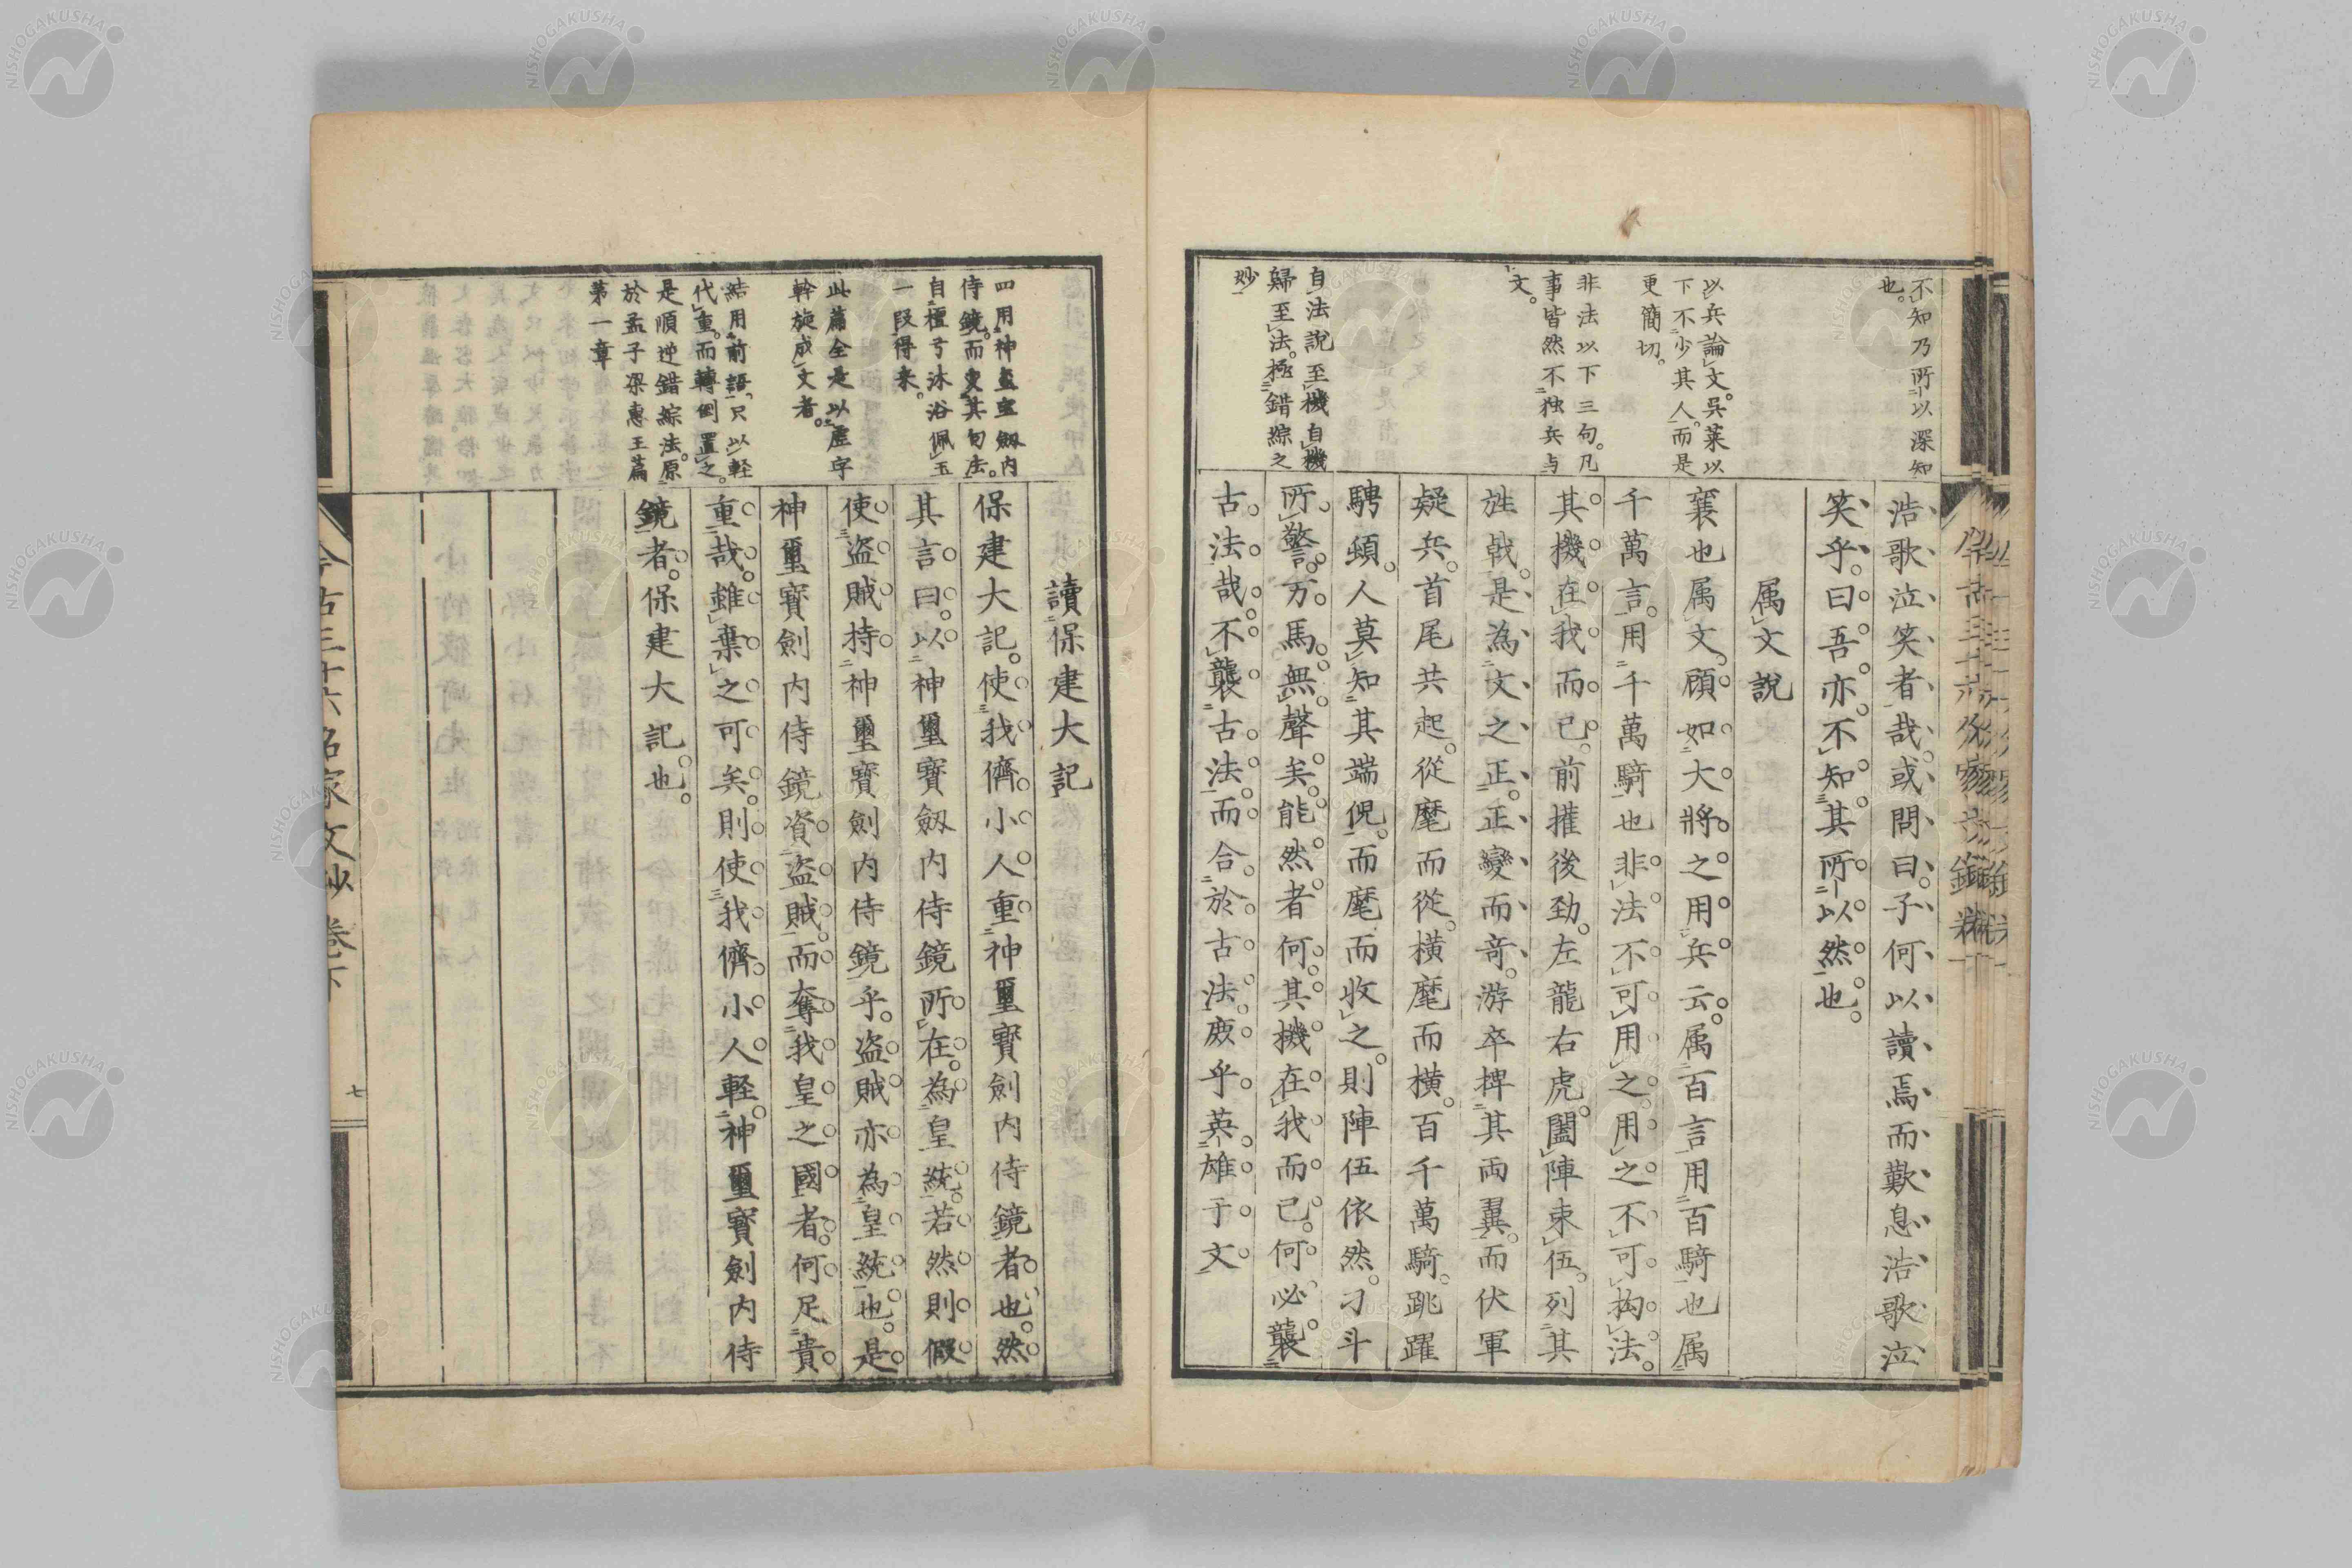 不知乃所以深知
也。
以兵論文。吳萊以
下不少其人。而是
更簡切。
非法以下三句。凡
事皆然不独兵与
文。
自法說至機自機
歸至法。極錯綜之
妙
浩歌泣笑者哉。或問曰。子何以讀焉而歎息浩歌泣
笑乎。曰。吾亦不知其所以然也。
属文說
襄也属文。顧如大將之用兵云。属百言用百騎也属
千萬言。用千萬騎也非法不可用之用之不可拘法。
其機在我而已。前摧後勁。左龍右虎。闔陣束伍。列其
旌戟。是為文之正。正變而奇。游卒捭其両翼。而伏軍
疑兵。首尾共起。從麾而從。橫麾而橫。百千萬騎。跳躍
騁頓。人莫知其端倪。而麾而收之。則陣伍依然。刁斗
所警。万馬無聲矣。能然者何。其機在我而已。何必襲
古法哉。不襲古法。而合於古法。庶乎英雄于文
四用神璽宝劔内
侍鏡。而変其句法。
自檀弓沐浴佩玉
一段得来。
此篇全是以虚字
幹旋成文者。
結用前語、只以軽
代重。而轉倒置之。
是順逆錯綜法。原
於孟子梁惠王篇
第一章
讀保建大記
保建大記。使我儕小人重神璽寶劍内侍鏡者也。然
其言曰。以神璽寶劔内侍鏡所在。為皇統。若然則假
使盗賊持神璽寶劍内侍鏡乎。盗賊亦為皇統也。是
神璽寶劍内侍鏡資盗賊。而奪我皇之國者。何足貴
重哉。雖棄之可矣。則使我儕小人軽神璽寶劍内侍
鏡者。保建大記也。
今古三十六名家文抄 卷下
七